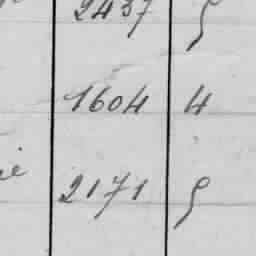 2437 5
1604 4
2171 5